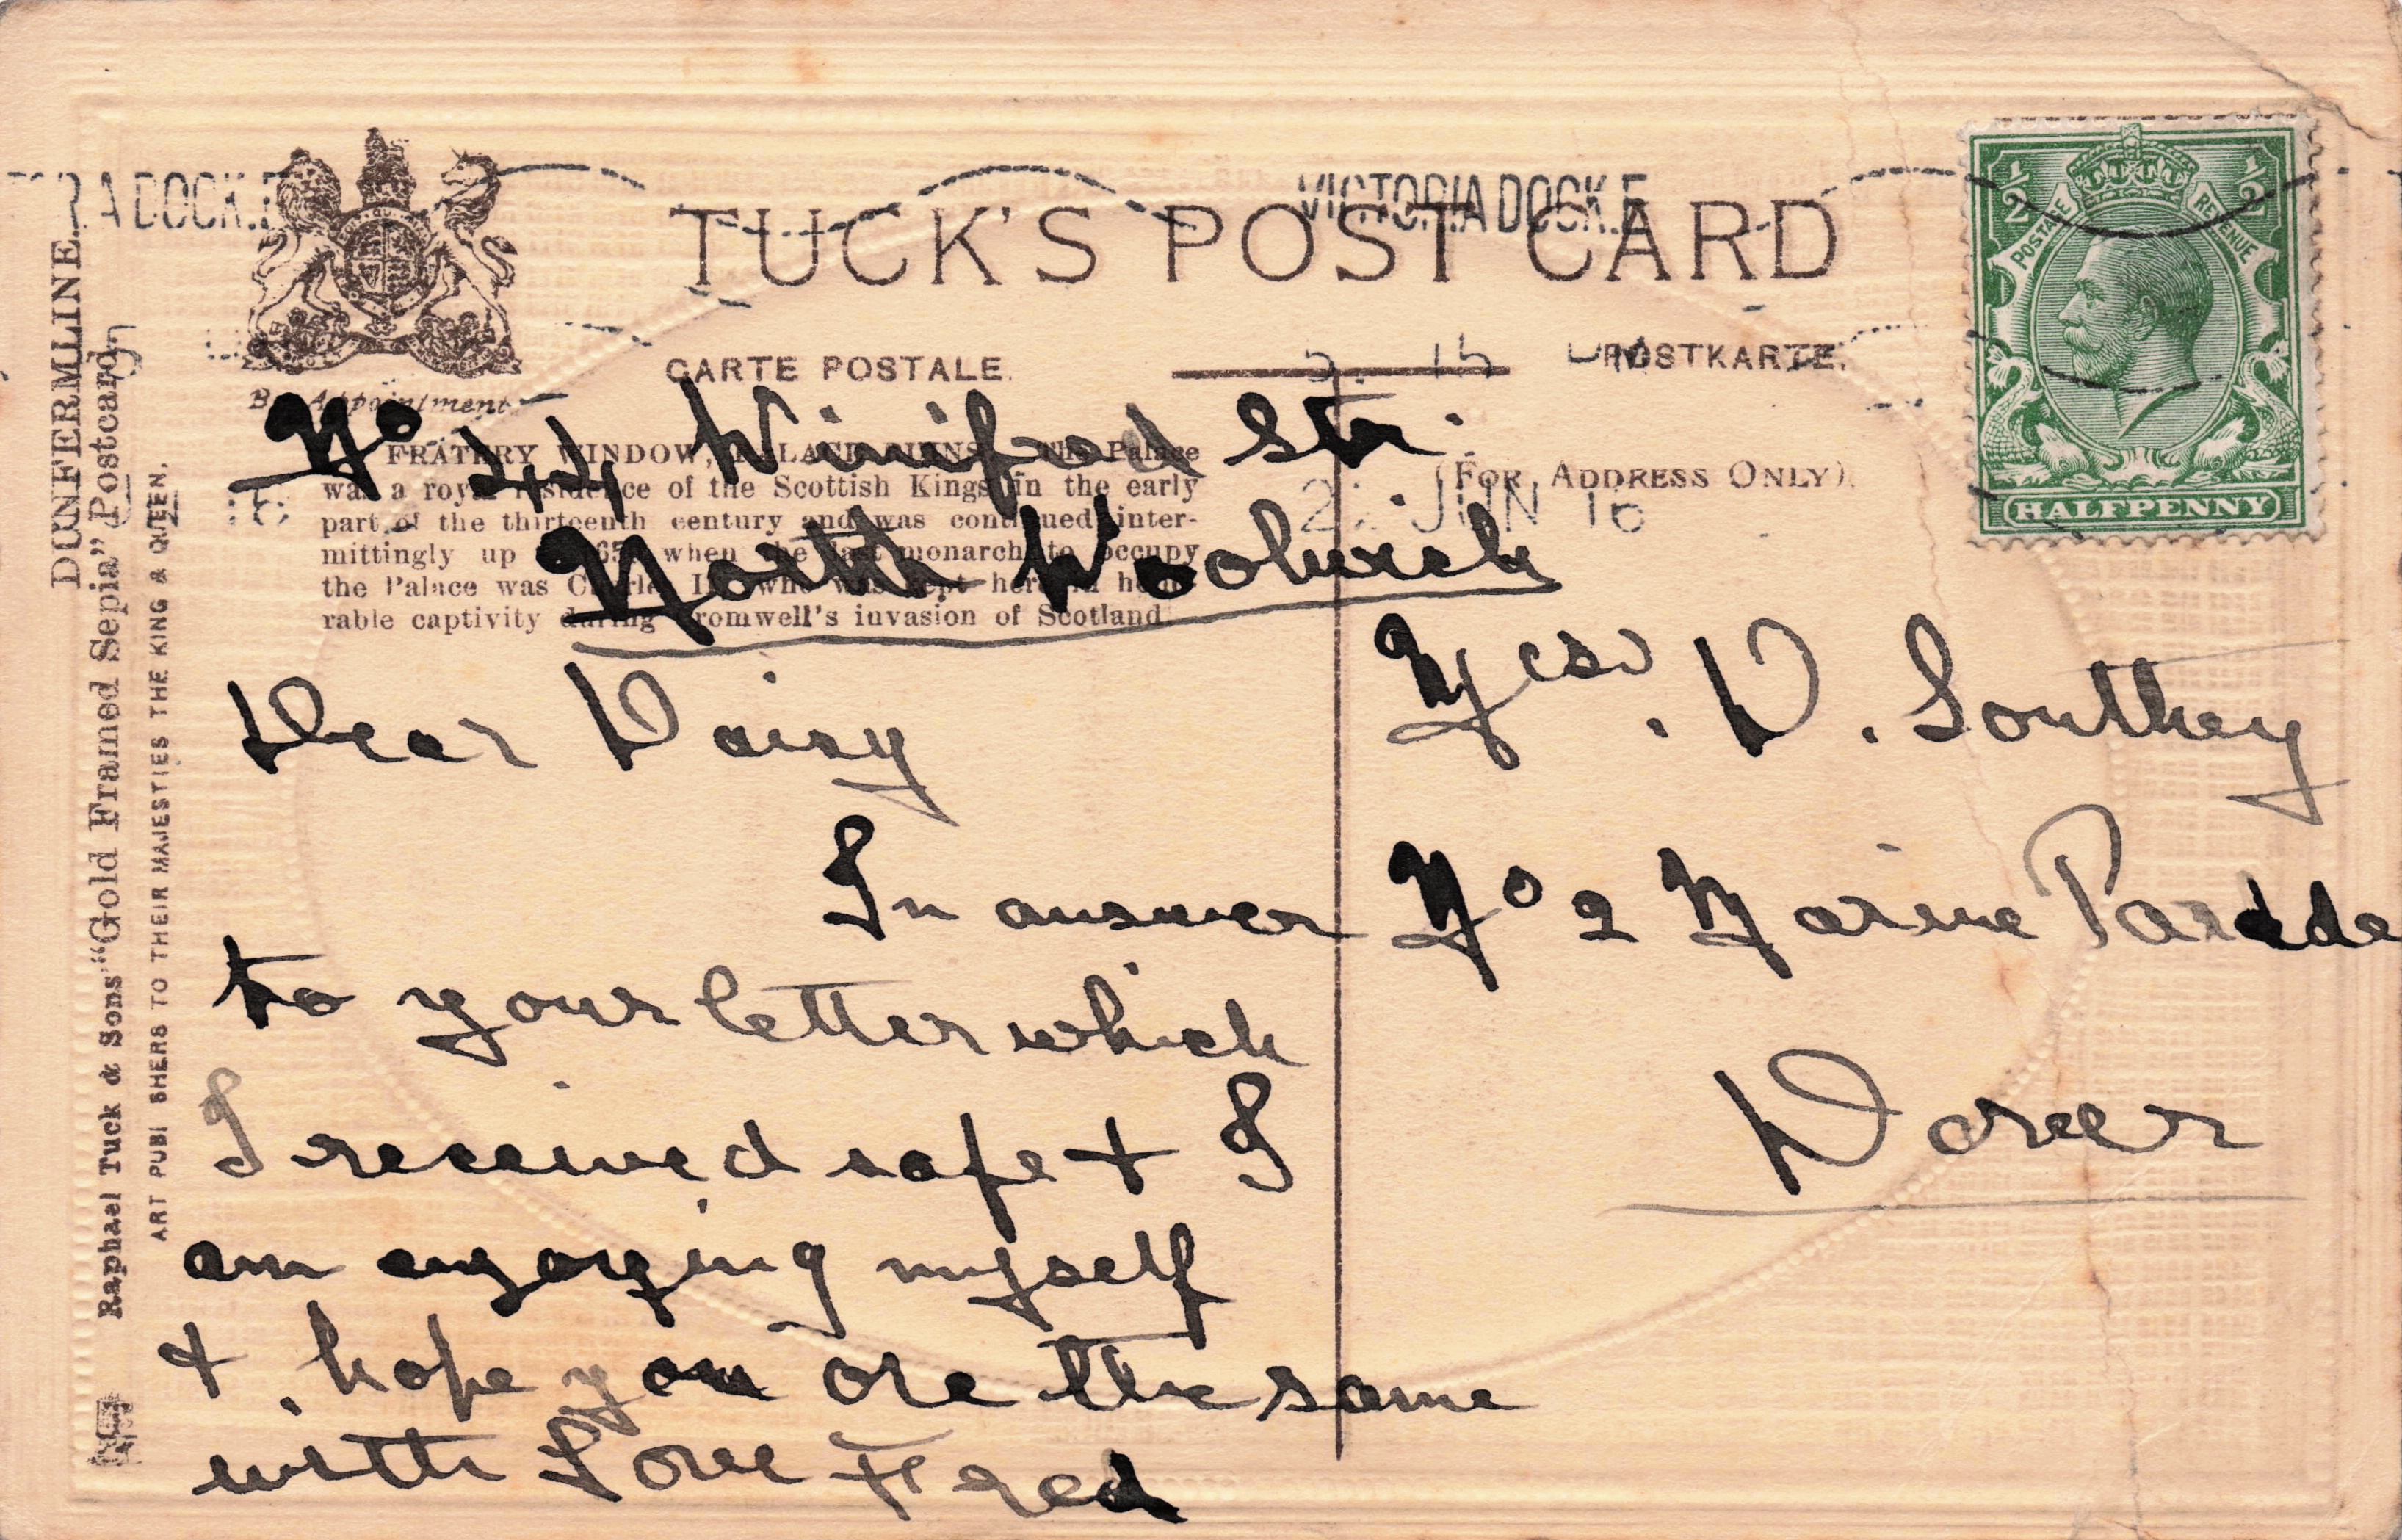 VICTORIA DOCK.E
TUCK'S POST CARD
CARTE POSTALE.
POSTKARTE.
By Appointment
(FOR ADDRESS ONLY)
JUN 16
½ ½
POSTAGE REVENUE
HALFPENNY
DUNFERMLINE
Raphael Tuck & Sons' "Gold Framed Sepia" Postcard
ART PUBLISHERS TO THEIR MAJESTIES THE KING & QUEEN.
FRATERY WINDOW, PALACE RUINS. The Palace
was a royal residence of the Scottish Kings in the early
part of the thirteenth century and was continued inter-
mittingly up when the last monarch to occupy
the Palace was Charles II. who was kept here in hono-
rable captivity during Cromwell's invasion of Scotland.
No 44 Winifred Str.
North Woolwich
Dear Daisy
In answer
to your letter which
I received safe + I
am enjoying myself
+ hope you are the same
with Love Fred
D. Southey
No 2 Marine Parade
Dover